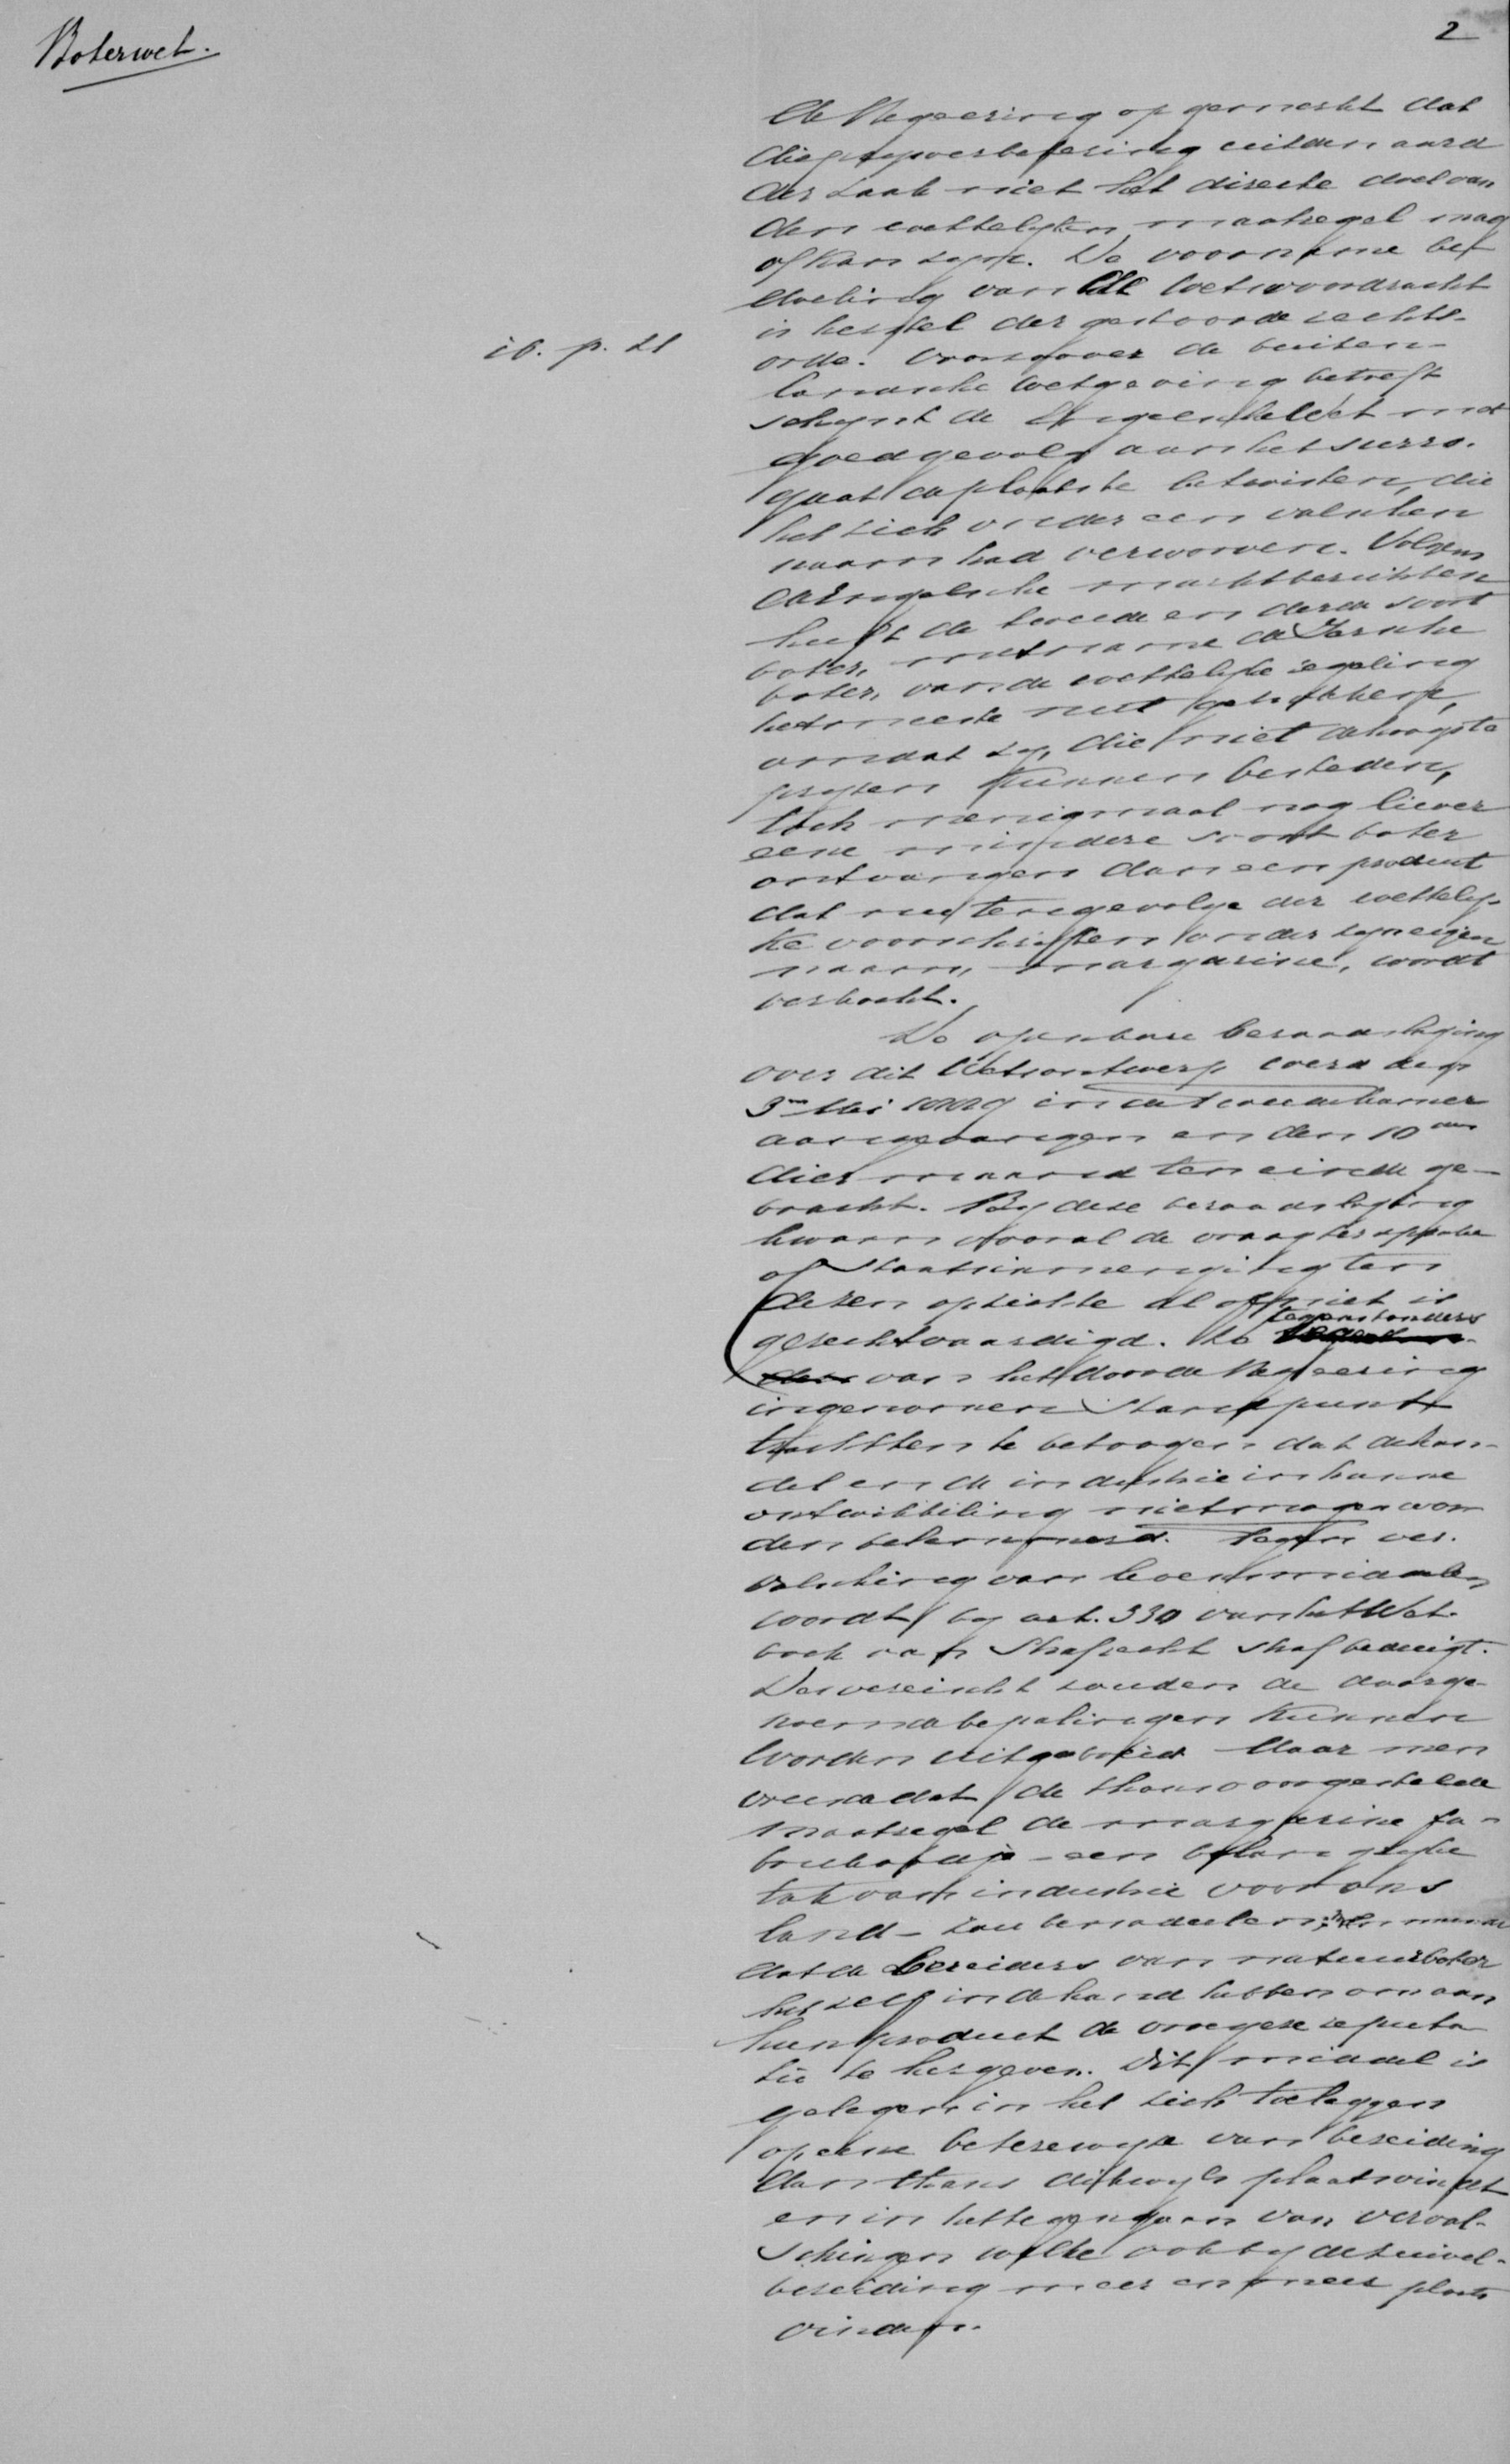 Boterwet.
2
de Regeering opgemerkt dat
die prysverbetering uit den aard
der zaak niet het directe doel van
den wettelyken maatregel mag
of kan zyn. De voorname be-
doeling van de wetsvoordracht
is herstel der gestoorde rechts-
ib. p. 21
orde. Voorzoover de buiten-
landsche wetgeving betreft
schynt de Engelsche wet met
goed gevolg aan het surro-
gaat de plaats te betwisten, die
het zich onder een valschen
naam had verworven. Volgens
de Engelsche marktberichten
heeft de tweede en derde soort
boter, met name de Iersche
boter, van de wettelyke regeling
het meeste nut getrokken,
omdat zy, die niet de hoogste
pryzen kunnen besteden,
toch menigmaal nog liever
eene mindere soort boter
ontvangen dan een product
dat nu tengevolge der wettely-
ke voorschriften onder zyn eigen
naam, margarine, wordt
verkocht.
De openbare beraadslaging
over dit wetsontwerp werd den
3en Mei 1889 in de Tweede Kamer
aangevangen en den 10den
dier maand ten einde ge-
bracht. By deze beraadslaging
kwam vooral de vraag ter sprake
of Staatsinmenging ten
dezen opzichte al of niet is
gerechtvaardigd. De tegenstanders
van het door de Regeering
ingenomen standpunt
trachtten te betoogen dat de han-
del en de industrie in hunne
ontwikkeling niet mogen wor-
den belemmerd. Tegen ver-
valsching van levensmiddelen
wordt by art. 330 van het Wet-
boek van Strafrecht straf bedreigd.
Desvereischt zouden de daarge-
noemde bepalingen kunnen
worden uitgebreid. Maar men
vreesde dat de thans voorgestelde
maatregel de margarine fa-
bricatie - een belangryke
tak van industrie voor ons
land - zou benadeelen
dat de bereiders van natuurboter
het zelf in de hand hebben om aan
hun product de vroegere reputa-
tie te hergeven. Dit middel is
gelegen in het zich toeleggen
op eene betere wyze van bereiding
dan thans dikwyls plaats vindt
en in het tegengaan van verval-
schingen welke ook by de zuivel-
bereiding meer en meer plaats
vinden.